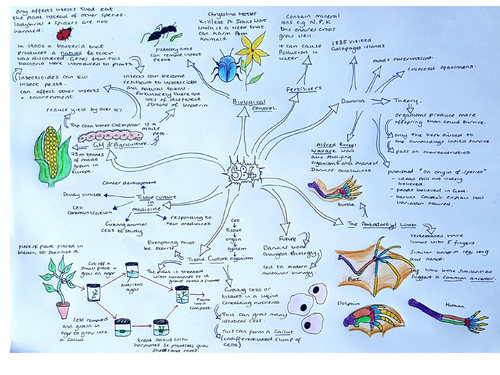 any affects insects that eat
the plant instead of other species.
ladybirds + spiders are not
harmed.
In 1900s a bacteria that
produced a natural
was discovered. Genes from this
bacteria were introduced to plants.
Insecticides can kill
insect pests.
can affect other insects
+ environment
reduce yield by over 10%.
The corn borer caterpillar is a maize
GM & Agriculture.
maize
grown in
europe.
can remove insect
pests
Insects can become
resistant to insecticides
and natural toxins.
Fortunately there are
lots of different
strains of bacteria
Chrysolina beetle
kill St Johns Wort
which is a weed that
can harm farm
animals
Biological
control.
Contain mineral
ions e.g N, P, K
this ensures crops
grow well
it can cause
Pollution in
water
Fertilisers
1835 visited
Galapagos islands
made observations
collected specimens.
Darwin
Theory
organisms produce more
offspring than could survive.
only the best suited to
the surroundings could survive
pass on characteristics
published "On origin of species"
- ideas did not widely
believed.
- people believed in God
- Darwin couldn't explain how
variation occurred
Alfred Russel
Wallace was
also studying
organisms and shared
Darwins conclusions
B3
Cancer development
Study viruses
Tissue culture
in medicine
Cell
communication
Growing animal
cells to study
responding to
new medicines
Everything must
be sterile
Tissue Culture
cell
tissue
organ
organ
system
organism
Future
Darwins book
changed Biology
led to modern
biology
turtle
The Pentadactyl Limb
vertebrates have
limbs with 5 fingers
Similar bones in leg
and hands.
limb bone similarities
suggest a common ancestor.
Bat
Dolphin
Human
piece of plant placed in
bleach to sterilise it
Cut off a
small piece +
grow on agar
nutrient
agar
The plant is treated
with hormones so it
grows
Placed
into
compost
Cells removed
and grown in
agar to grow into
a callus
callus with
hormones so plantlets grow
shoots and roots
Growing cells or
tissues in a liquid
containing nutrients
This can grow many
identical cells
This can form a Callus
(undifferentiated clump of
cells)